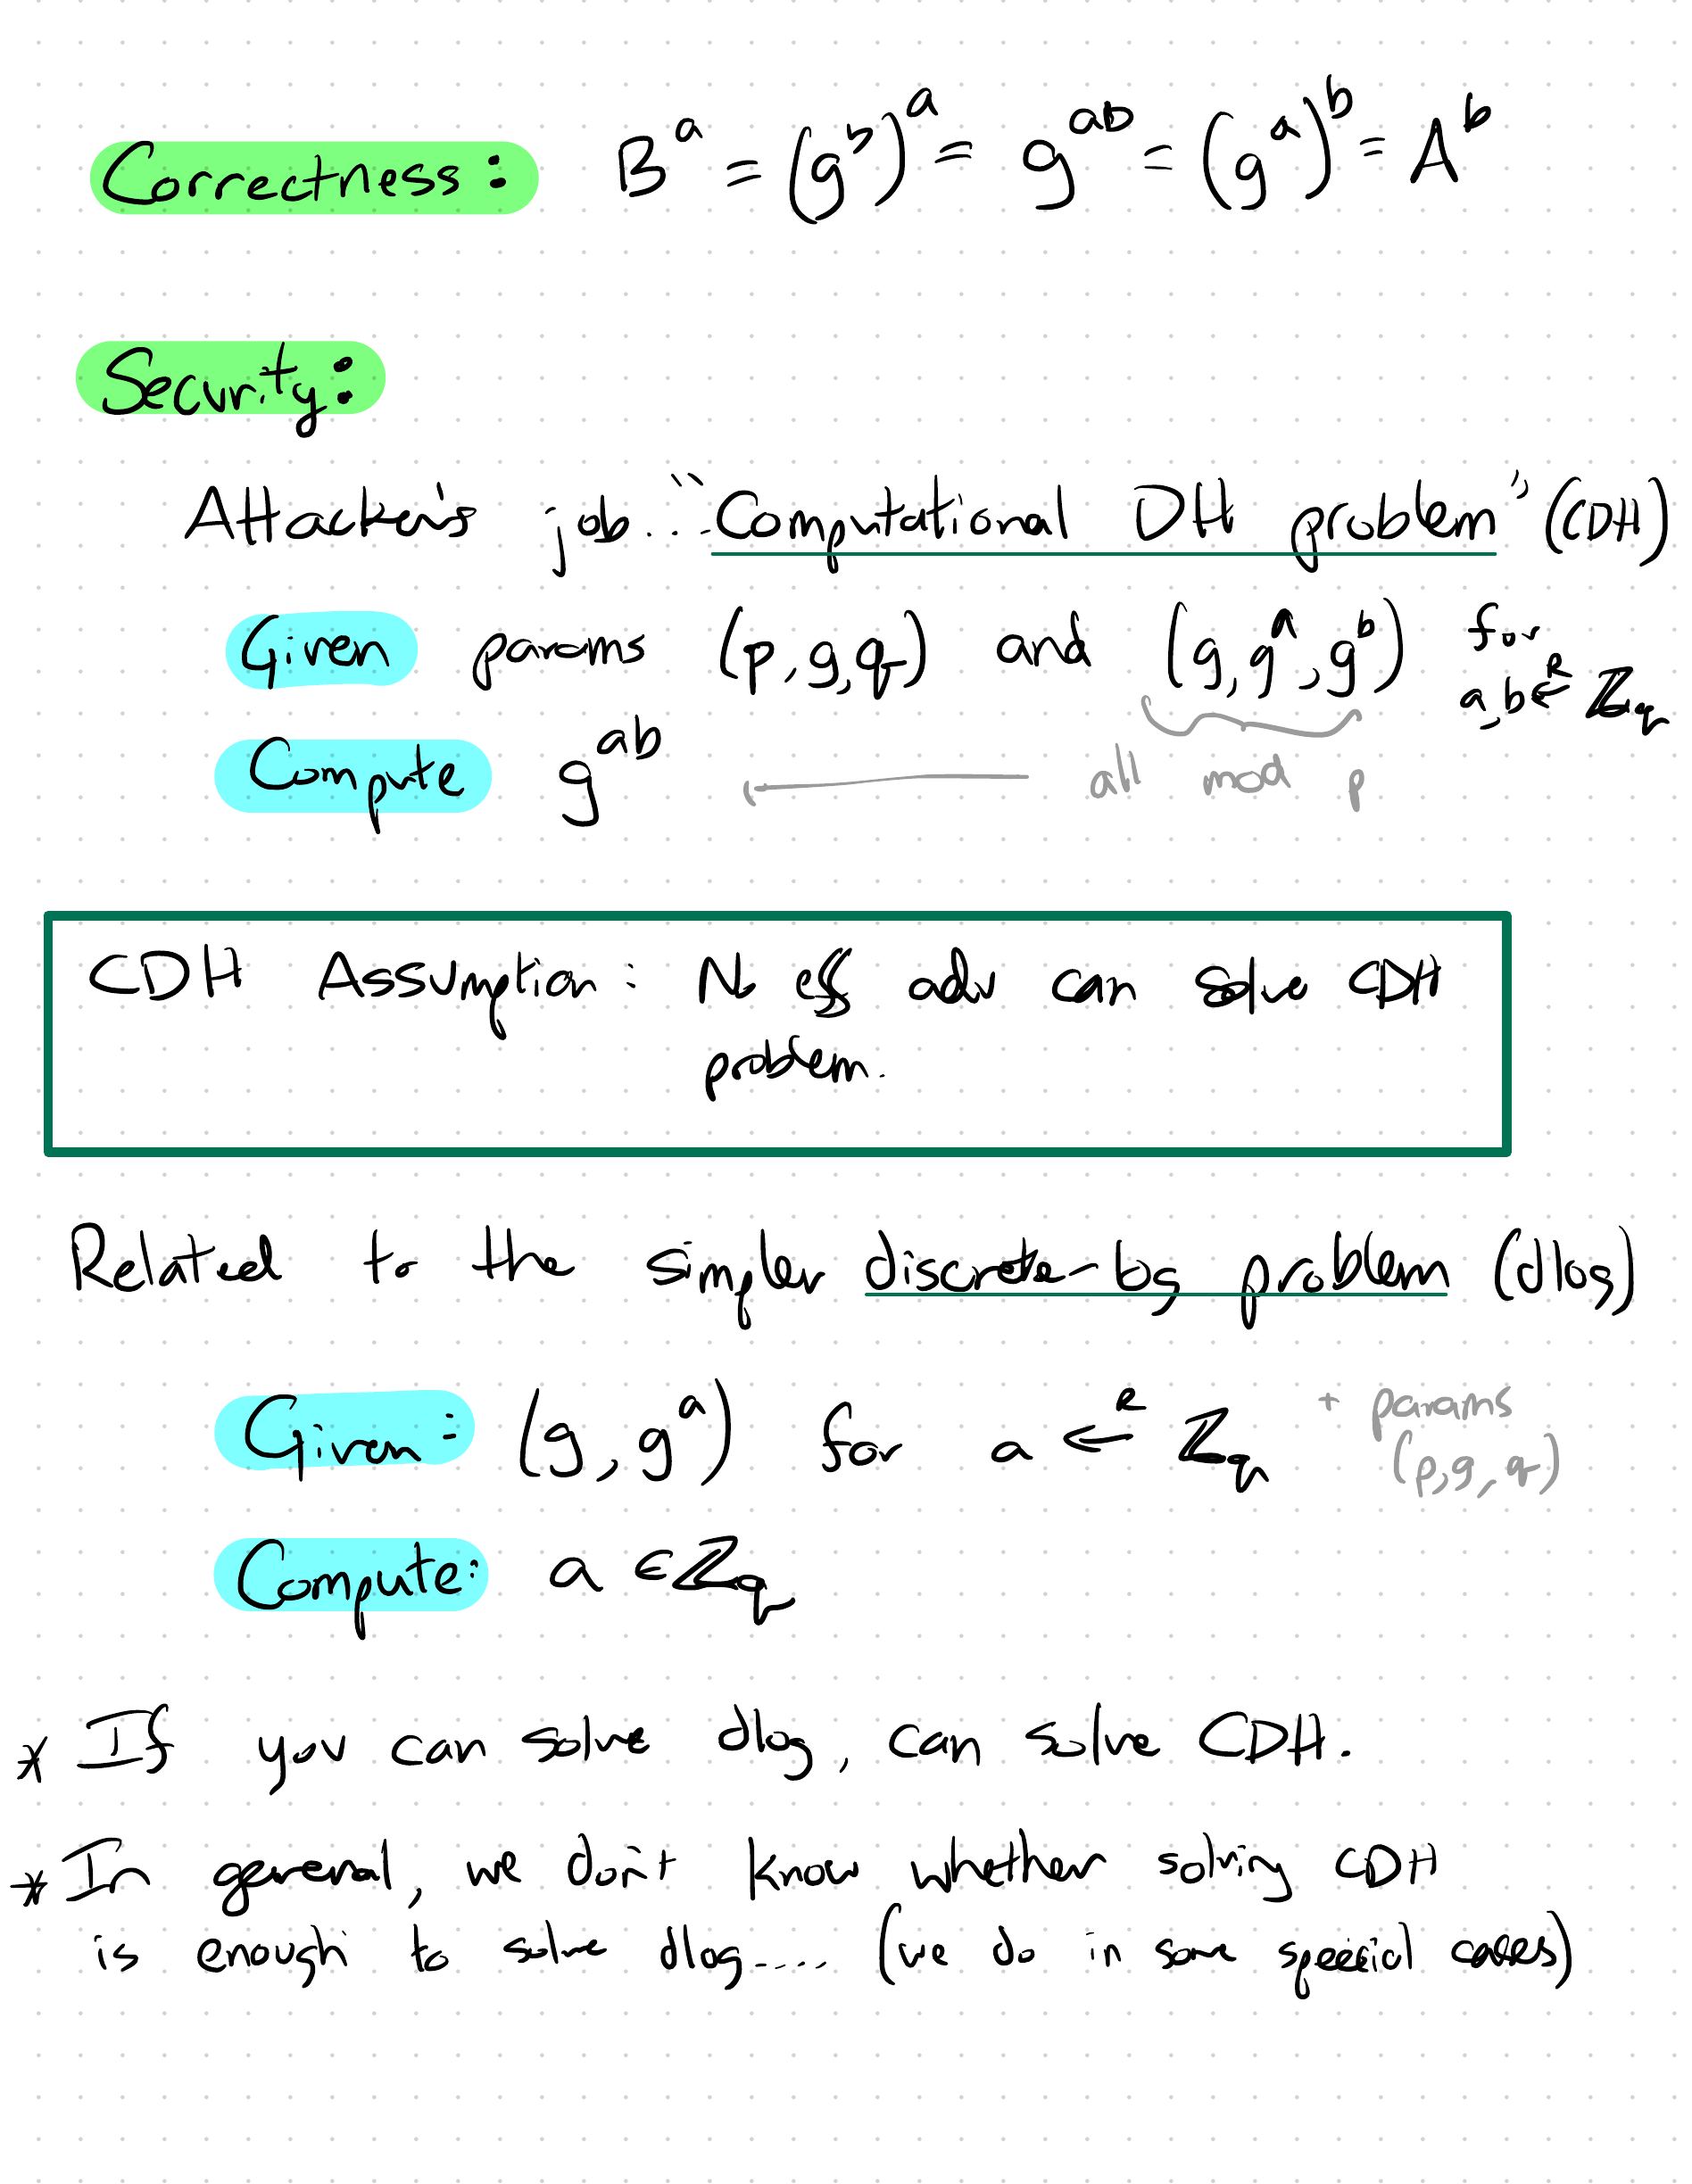 Correctness: B^a = (g^b)^a = g^{ab} = (g^a)^b = A^b
Security:
Attacker's job... "Computational DH problem" (CDH)
Given params (p, g, q) and (g, g^a, g^b) for
a, b ←^R ℤ_q
Compute g^{ab} ← all mod p
CDH Assumption: No eff adv can solve CDH
problem.
Related to the simpler discrete-log problem (dlog)
Given: (g, g^a) for a ←^R ℤ_q + params
(p, g, q)
Compute: a ∈ ℤ_q
* If you can solve dlog, can solve CDH.
* In general, we don't know whether solving CDH
is enough to solve dlog.... (we do in some special cases)